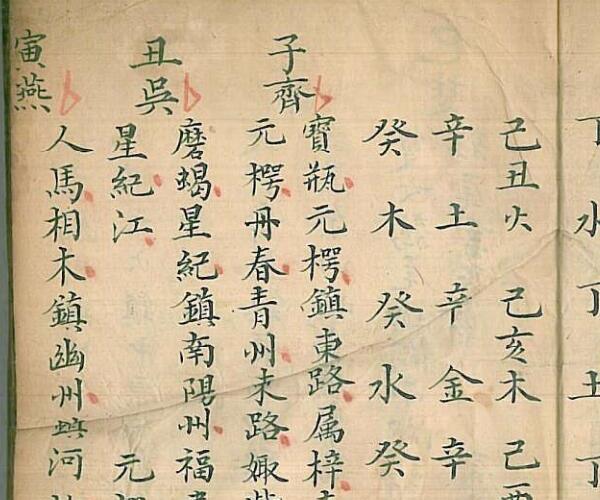 丁 水 丁 土 丁
己丑火 己亥木 己酉
辛 土 辛 金 辛
癸 木 癸 水 癸
子齊
寶瓶元楞鎮東路属梓
元楞丹春青州末路娵訾
丑吳
磨蝎星紀鎮南陽州福
星紀江 元
寅燕
人馬相木鎮幽州 河